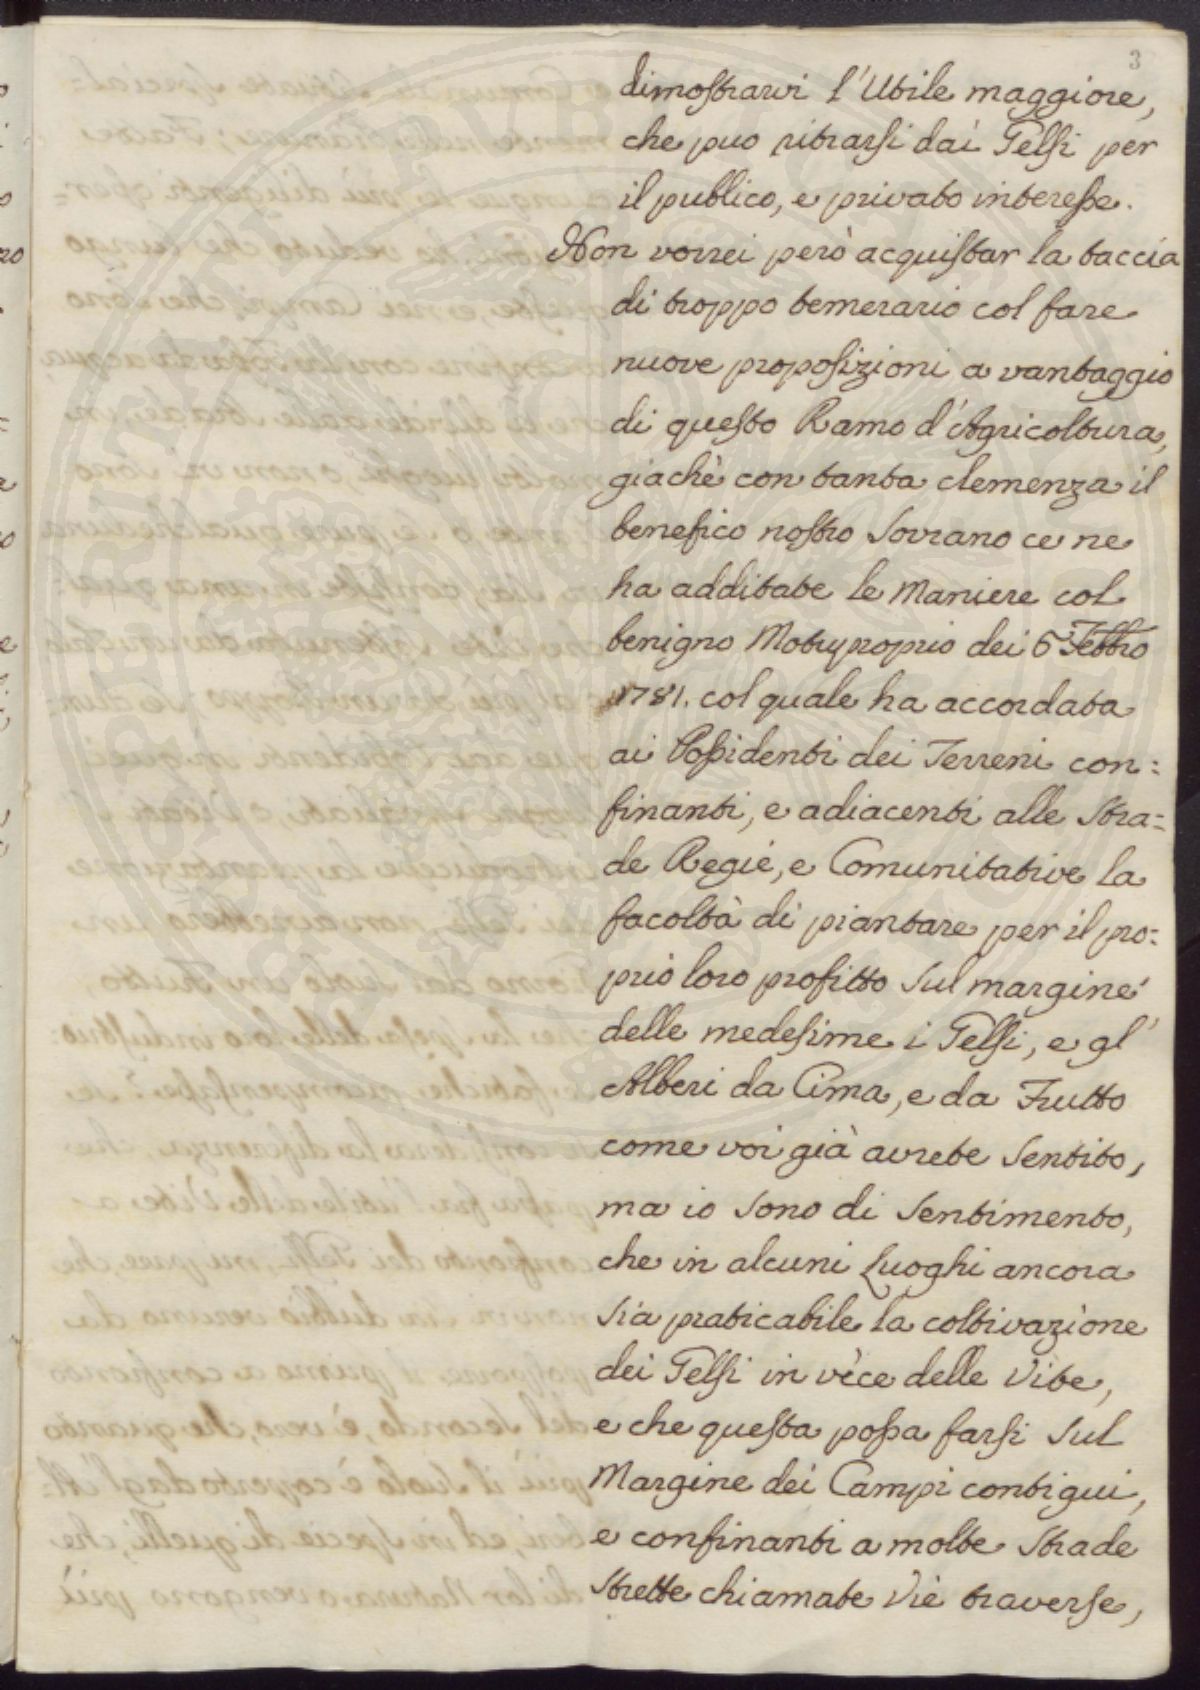 3
dimostrarvi l'Utile maggiore,
che puo ritrarsi dai Gelsi per
il publico, e privato interesse.
Non vorrei però acquistar la taccia
di troppo temerario col fare
nuove proposizioni a vantaggio
di questo Ramo d'Agricoltura,
giachè con tanta clemenza il
benefico nostro Sovrano ce ne
ha additate le Maniere col
benigno Motuproprio dei 6 Febbro
1781. col quale ha accordata
ai Possidenti dei Terreni con=
finanti, e adiacenti alle Stra=
de Regie, e Comunitative la
facoltà di piantare per il pro=
prio loro profitto sul margine
delle medesime i Gelsi, e gl'
Alberi da Cima, e da Frutto
come voi già avrete sentito,
ma io sono di sentimento,
che in alcuni Luoghi ancora
sia praticabile la coltivazione
dei Gelsi in vece delle Vite,
e che questa possa farsi sul
Margine dei Campi contigui,
e confinanti a molte Strade
strette chiamate Vie traverse,